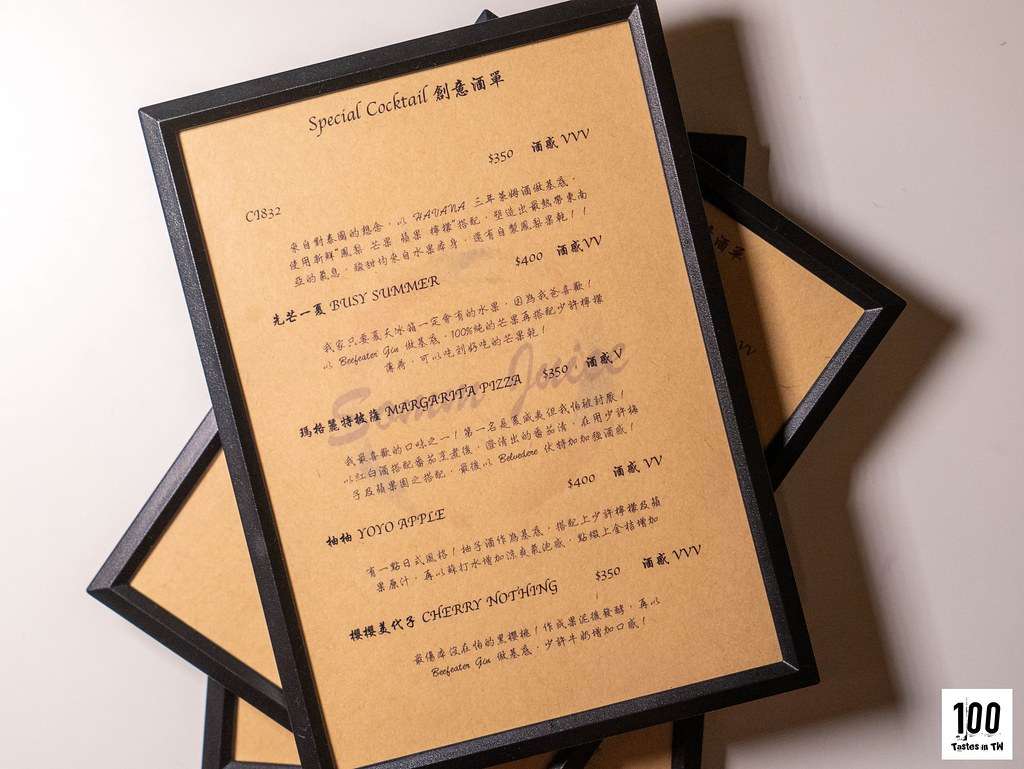 Special Cocktail 創意酒單
CI832 $350 酒感 VVV
來自對泰國的想念，以 HAVANA 三年萊姆酒做基底，
使用新鮮"鳳梨 芒果 蘋果 檸檬"搭配，塑造出最熱帶東南
亞的氣息，酸甜均來自水果本身，還有自製鳳梨果乾！！
先芒一夏 BUSY SUMMER $400 酒感 VV
我家只要夏天冰箱一定會有的水果，因為我爸喜歡！
以 Beefeater Gin 做基底，100%純的芒果再搭配少許檸檬
薄荷，可以吃到好吃的芒果乾！
瑪格麗特披薩 MARGARITA PIZZA $350 酒感 V
我最喜歡的口味之一！第一名是夏威夷但我怕被封殺！
以紅白酒搭配番茄烹煮後，澄清出的番茄清，在用少許梅
子及蘋果園之搭配，最後以 Belvedere 伏特加加強酒感！
柚柚 YOYO APPLE $400 酒感 VV
有一點日式風格！柚子酒作為基底，搭配上少許檸檬及蘋
果原汁，再以蘇打水增加涼爽氣泡感，點綴上金桔增加
櫻櫻美代子 CHERRY NOTHING $350 酒感 VVV
最傷本沒在怕的黑櫻桃！作成果泥後發酵，再以
Beefeater Gin 做基底，少許牛奶增加口感！
Somm Juice
100
Tastes in TW